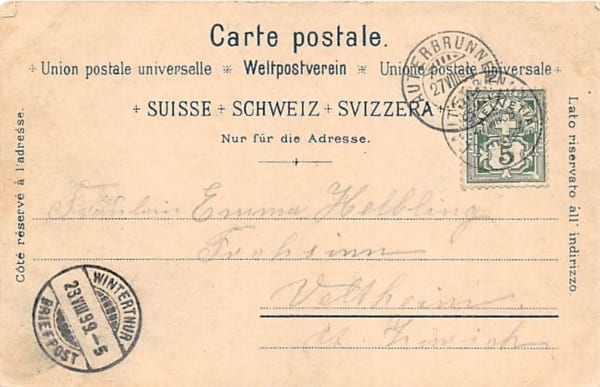 Carte postale.
Union postale universelle ✻ Weltpostverein ✻ Unione postale universale
SUISSE + SCHWEIZ + SVIZZERA
Nur für die Adresse.
Côté réservé à l'adresse.
Lato riservato all' indirizzo.
LAUTERBRUNNEN
27 VIII
HELVETIA
5
Fräulein Emma Helbling
Frohsinn
Veltheim
Kt. Zürich
WINTERTHUR
23 VIII 99. - 5
BRIEFPOST